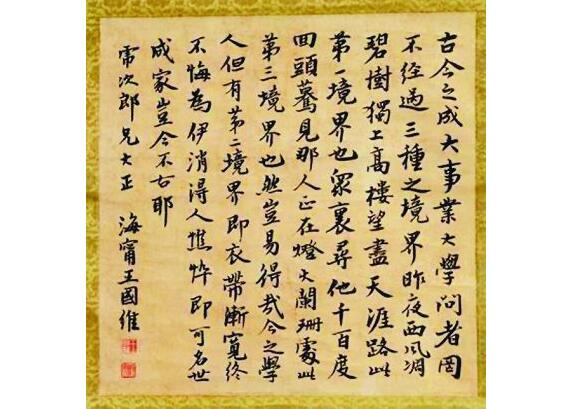 古今之成大事業大學問者罔
不經過三種之境界昨夜西風凋
碧樹獨上高樓望盡天涯路此
第一境界也眾裏尋他千百度
回頭驀見那人正在燈火闌珊處此
第三境界也然豈易得哉今之學
人但有第二境界即衣帶漸寬終
不悔為伊消得人憔悴即可名世
成家豈今不古耶
常次郎兄大正
海甯王國維